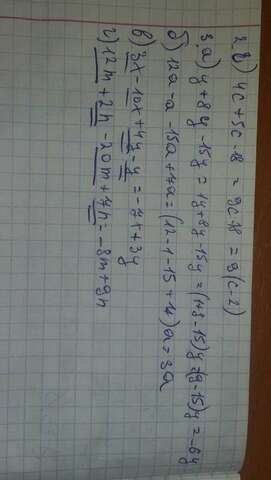 2. в) 4c + 5c - 18 = 9c - 18 = 9(c - 2)
3. а) y + 8y - 15y = 1y + 8y - 15y = (1+8-15)y = (9-15)y = -6y
б) 12a - a - 15a + 7a = (12 - 1 - 15 + 7)a = 3a
в) 3x - 10x + 4y - y = -7x + 3y
г) 12m + 2n - 20m + 7n = -8m + 9n